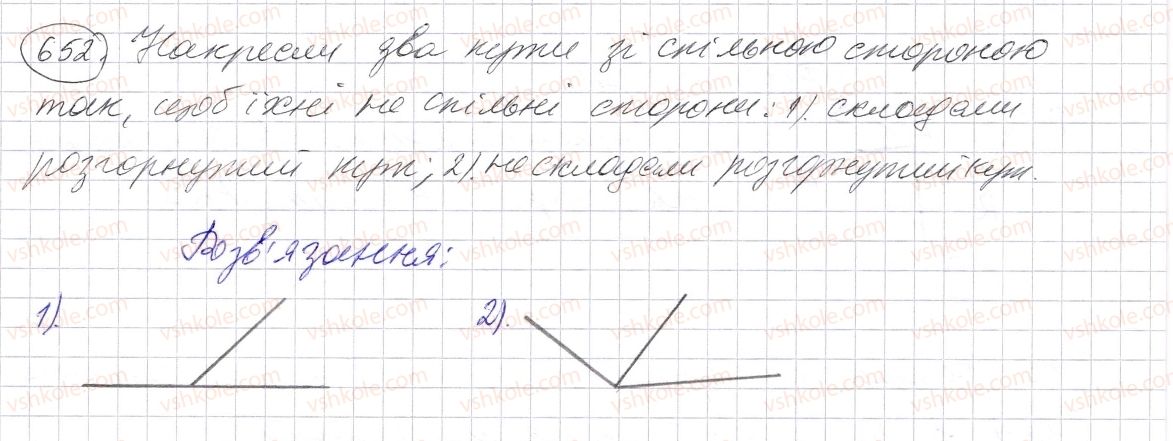 652. Накресли два кути зі спільною стороною
так, щоб їхні не спільні сторони: 1). складали
розгорнутий кут; 2) не складали розгорнутий кут.
Розв'язання:
1). 2).
vshkole.com